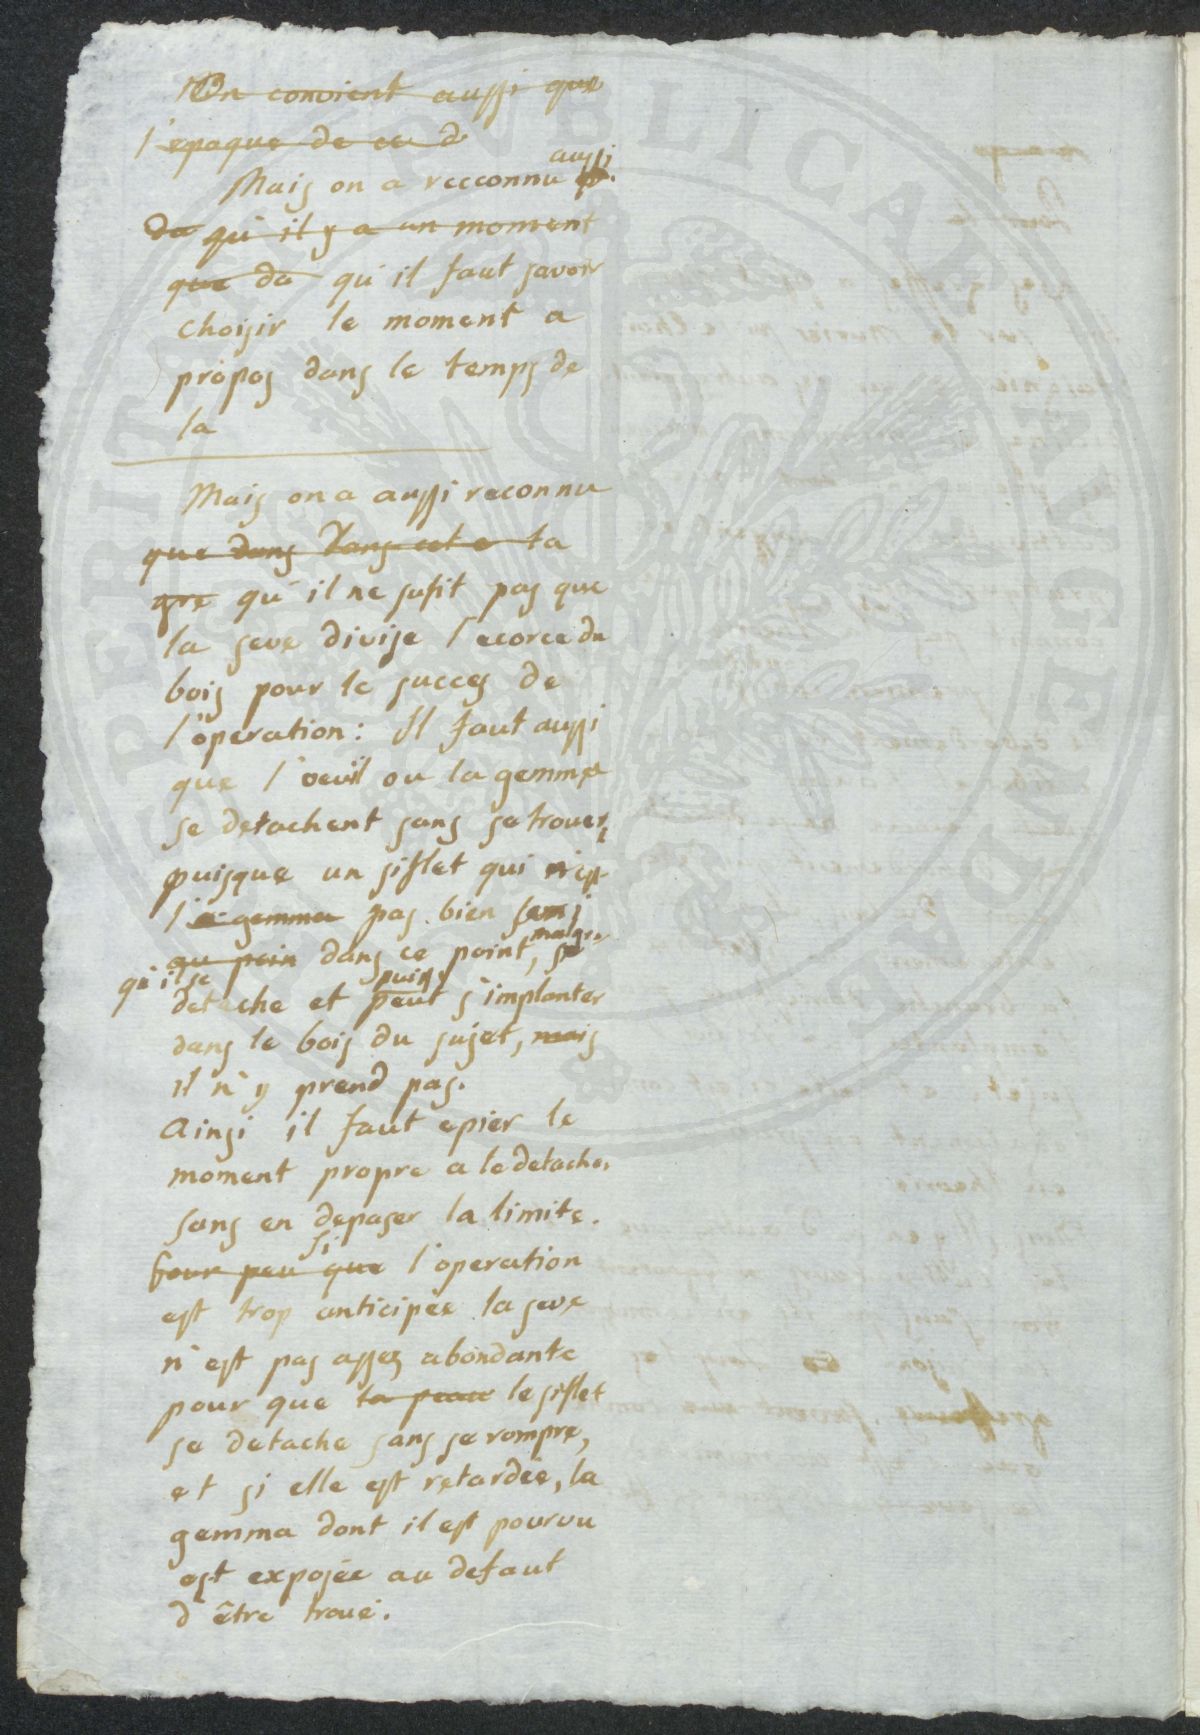 On convient aussi que
l'epoque de ce d
aussi
Mais on a recconnu
da qu'il y a un moment
que da qu'il faut savoir
choisir le moment a
propos dans le temps de
la
Mais on a aussi reconnu
que dans dans cet e ta
gre qu'il ne sufit pas que
la seve divise l'ecorce du
bois pour le succes de
l'operation: Il faut aussi
que l'oeuil ou la gemma
se detachent sans se trouer,
puisque un siflet qui n'est
l'a gemma pas bien
qu pein dans ce point, malgre
qu'il se puisse
detache et peut s'implanter
dans le bois du sujet, mais
il n'y prend pas.
Ainsi il faut epier le
moment propre a le detacher
sans en depaser la limite.
si
pour peu que l'operation
est trop anticipée la seve
n'est pas assez abondante
pour que la peau le siflet
se detache sans se rompre,
et si elle est retardée, la
gemma dont il est pourvu
est exposée au defaut
d'être troué.
PROSPERITATI PUBLICAE AUGENDAE